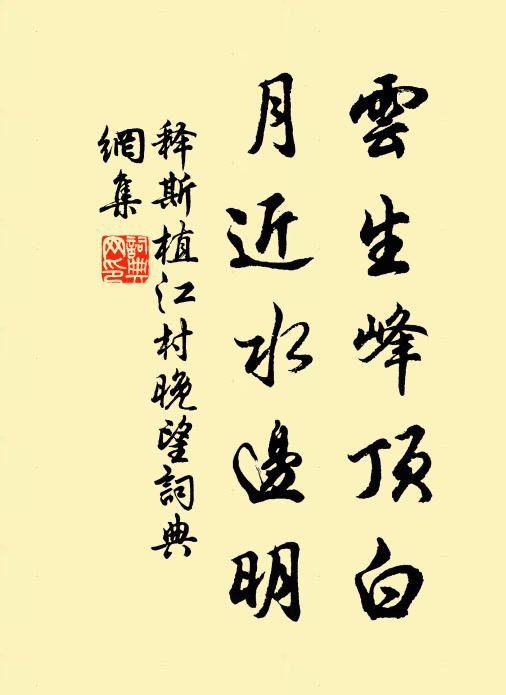 雲生峰頂白
月近水邊明
释斯植江村晚望詞典
網集
詞典
网印